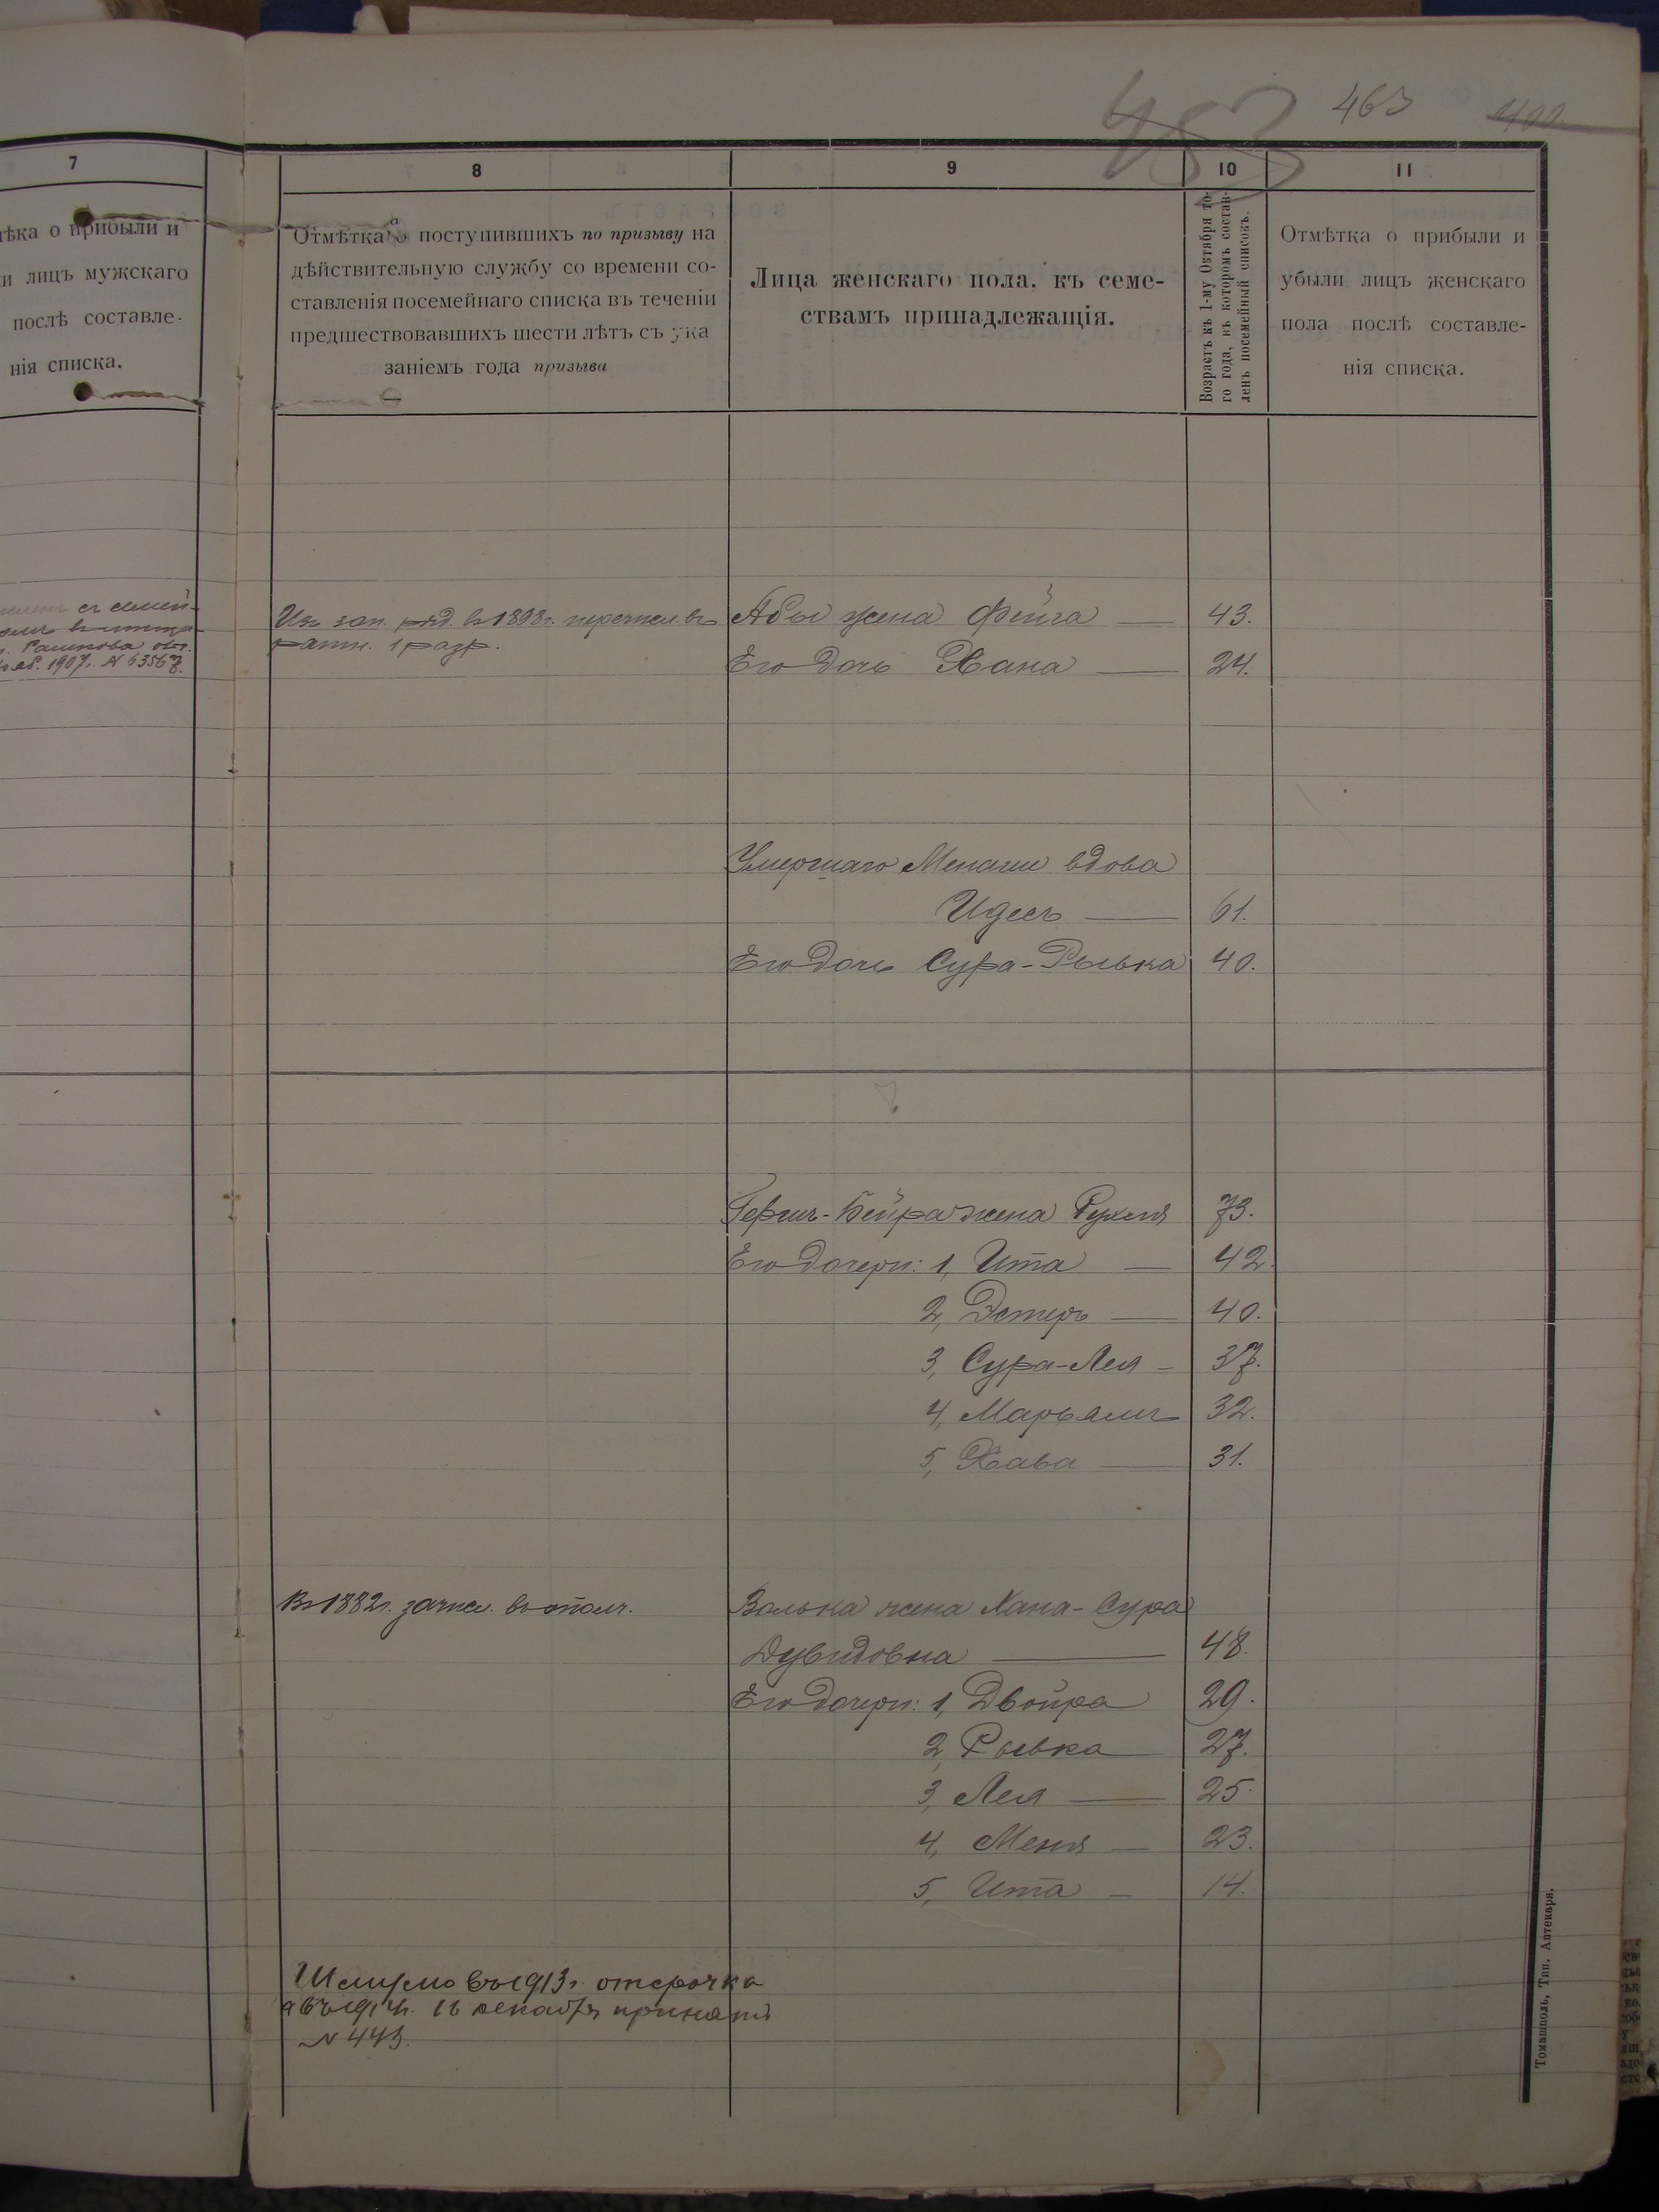 463
7
8
9
10
11
тѣка о прибыли и
и лицъ мужскаго
послѣ составле-
нія списка.
Отмѣтка о поступившихъ по призыву на
дѣйствительную службу со времени со-
ставленія посемейнаго списка въ теченіи
предшествовавшихъ шести лѣтъ съ ука
заніемъ года призыва
Лица женскаго пола, къ семе-
ствамъ принадлежащія.
Возрастъ къ 1-му Октября то-
го года, въ которомъ состав-
ленъ посемейный списокъ.
Отмѣтка о прибыли и
убыли лицъ женскаго
пола послѣ составле-
нія списка.
съ семей-
Рашкова
1907г. № 63567.
Изъ зап. ряд. въ 1898г. перечисл. въ
ратн. 1 разр.
Абы жена Фейга 43.
Его дочь Хана 24.
Умершаго Менаши вдова
Идесъ 61.
Его дочь Сура-Рывка 40.
Гершъ-Бейра жена Рухля 73.
Его дочери: 1, Ита 42.
2, Эстеръ 40.
3, Сура-Лея 37.
4, Марьямъ 32.
5, Хава 31.
Въ 1882г. зачисл. въ ополч.
Волька жена Хана-Сура
Дувидовна 48.
Его дочери: 1, Двойра 29.
2, Рывка 27.
3, Лея 25.
4, Меня 23.
5, Ита 14.
Шмулю въ 1913г. отсрочка
а въ 1914г. 16 декабря принятъ
№ 443.
Томашполь, Тип. Аптекаря.